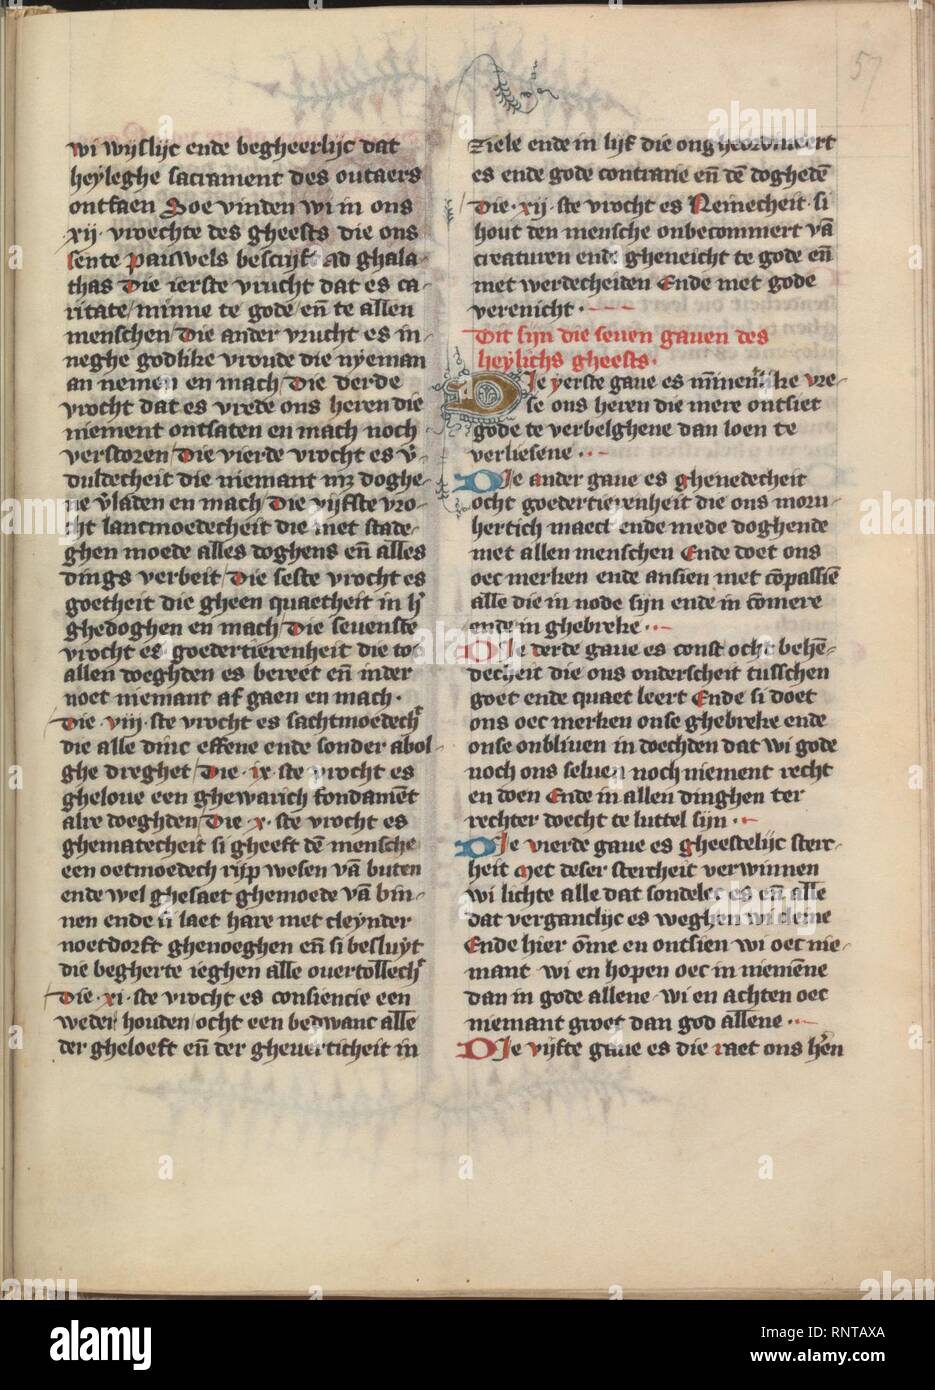 57
wi wijslijc ende begheerlijc dat
heyleghe sacrament des outaers
ontfaen Soe vinden wi in ons
xij. vruechte des gheests die ons
sente pauwels bescrijft ad ghala-
thas Die ierste vrucht dat es ca-
ritate/ minne te gode/ en̄ te allen
menschen/ Die ander vrucht es in-
neghe godlike vroude die nyeman
an nemen en mach/ Die derde
vrocht dat es vrede ons heren die
niement ontsaten en mach noch
verstoren/ Die vierde vrocht es v̄-
duldecheit die niemant doghe-
ne v̄laden en mach/ Die vijfste vro-
cht lancmoedecheit die met stade-
ghen moede alles doghens en̄ alles
dings verbeit/ Die seste vrocht es
goetheit die gheen quaetheit in
ghedoghen en mach/ Die seuenste
vrocht es goedertierenheit die tot
allen doeghden es bereet en̄ inder
noet niemant af gaen en mach.
Die .viij. ste vrocht es sachtmoedech
die alle dinc effene ende sonder abol-
ghe dreghet/ Die .ix. ste vrocht es
gheloue een ghewarich fondamēt
alre doeghden/ Die .x. ste vrocht es
ghematecheit si gheeft dē mensche
een oetmoedech rijp wesen vā buten
ende wel ghesaet ghemoede vā bin-
nen ende si laet hare met cleynder
noetdorft ghenoeghen en̄ si besluyt
die begherte ieghen alle ouertollech
Die .xi. ste vrocht es consiencie een
weder houden/ ocht een bedwanc alle
der gheloeft en̄ der gheuerticheit in
ziele ende in lijf die ongheordineert
es ende gode contrarie en̄ dē doghedē
/Die .xij. ste vrocht es Reinecheit. si
hout den mensche onbecommert vā
creaturen ende gheneicht te gode en̄
met werdecheiden Ende met gode
verenicht.
Dit sijn die seuen gauen des
heylichs gheests.
DIe yerste gaue es minnenlike vre-
se ons heren die mere ontsiet
gode te verbelghene dan loen te
verliesene.
DIe ander gaue es ghenedecheit
ocht goedertierenheit die ons moru-
hertich maect ende mede doghende
met allen menschen Ende doet ons
oec merken ende ansien met cōpassiē
alle die in node sijn ende in cōmere
ende in ghebreke.
DIe derde gaue es const ocht behē-
decheit die ons onderscheit tusschen
goet ende quaet leert Ende si doet
ons oec merken onse ghebreke ende
onse onbliuen in doechden dat wi gode
noch ons seluen noch niement recht
en doen Ende in allen dinghen ter
rechter doecht te luttel sijn.
DIe vierde gaue es gheestelijc sterc-
heit Met deser stercheit verwinnen
wi lichte alle dat sondelec es en̄ alle
dat verganclijc es weghen wi cleine
Ende hier ōme en ontsien wi oec nie-
mant wi en hopen oec in niemēne
dan in gode allene wi en achten oec
niemant groet dan god allene.
DIe vijfte gaue es die raet ons hēn
alamy
Image ID: RNTAXA
www.alamy.com